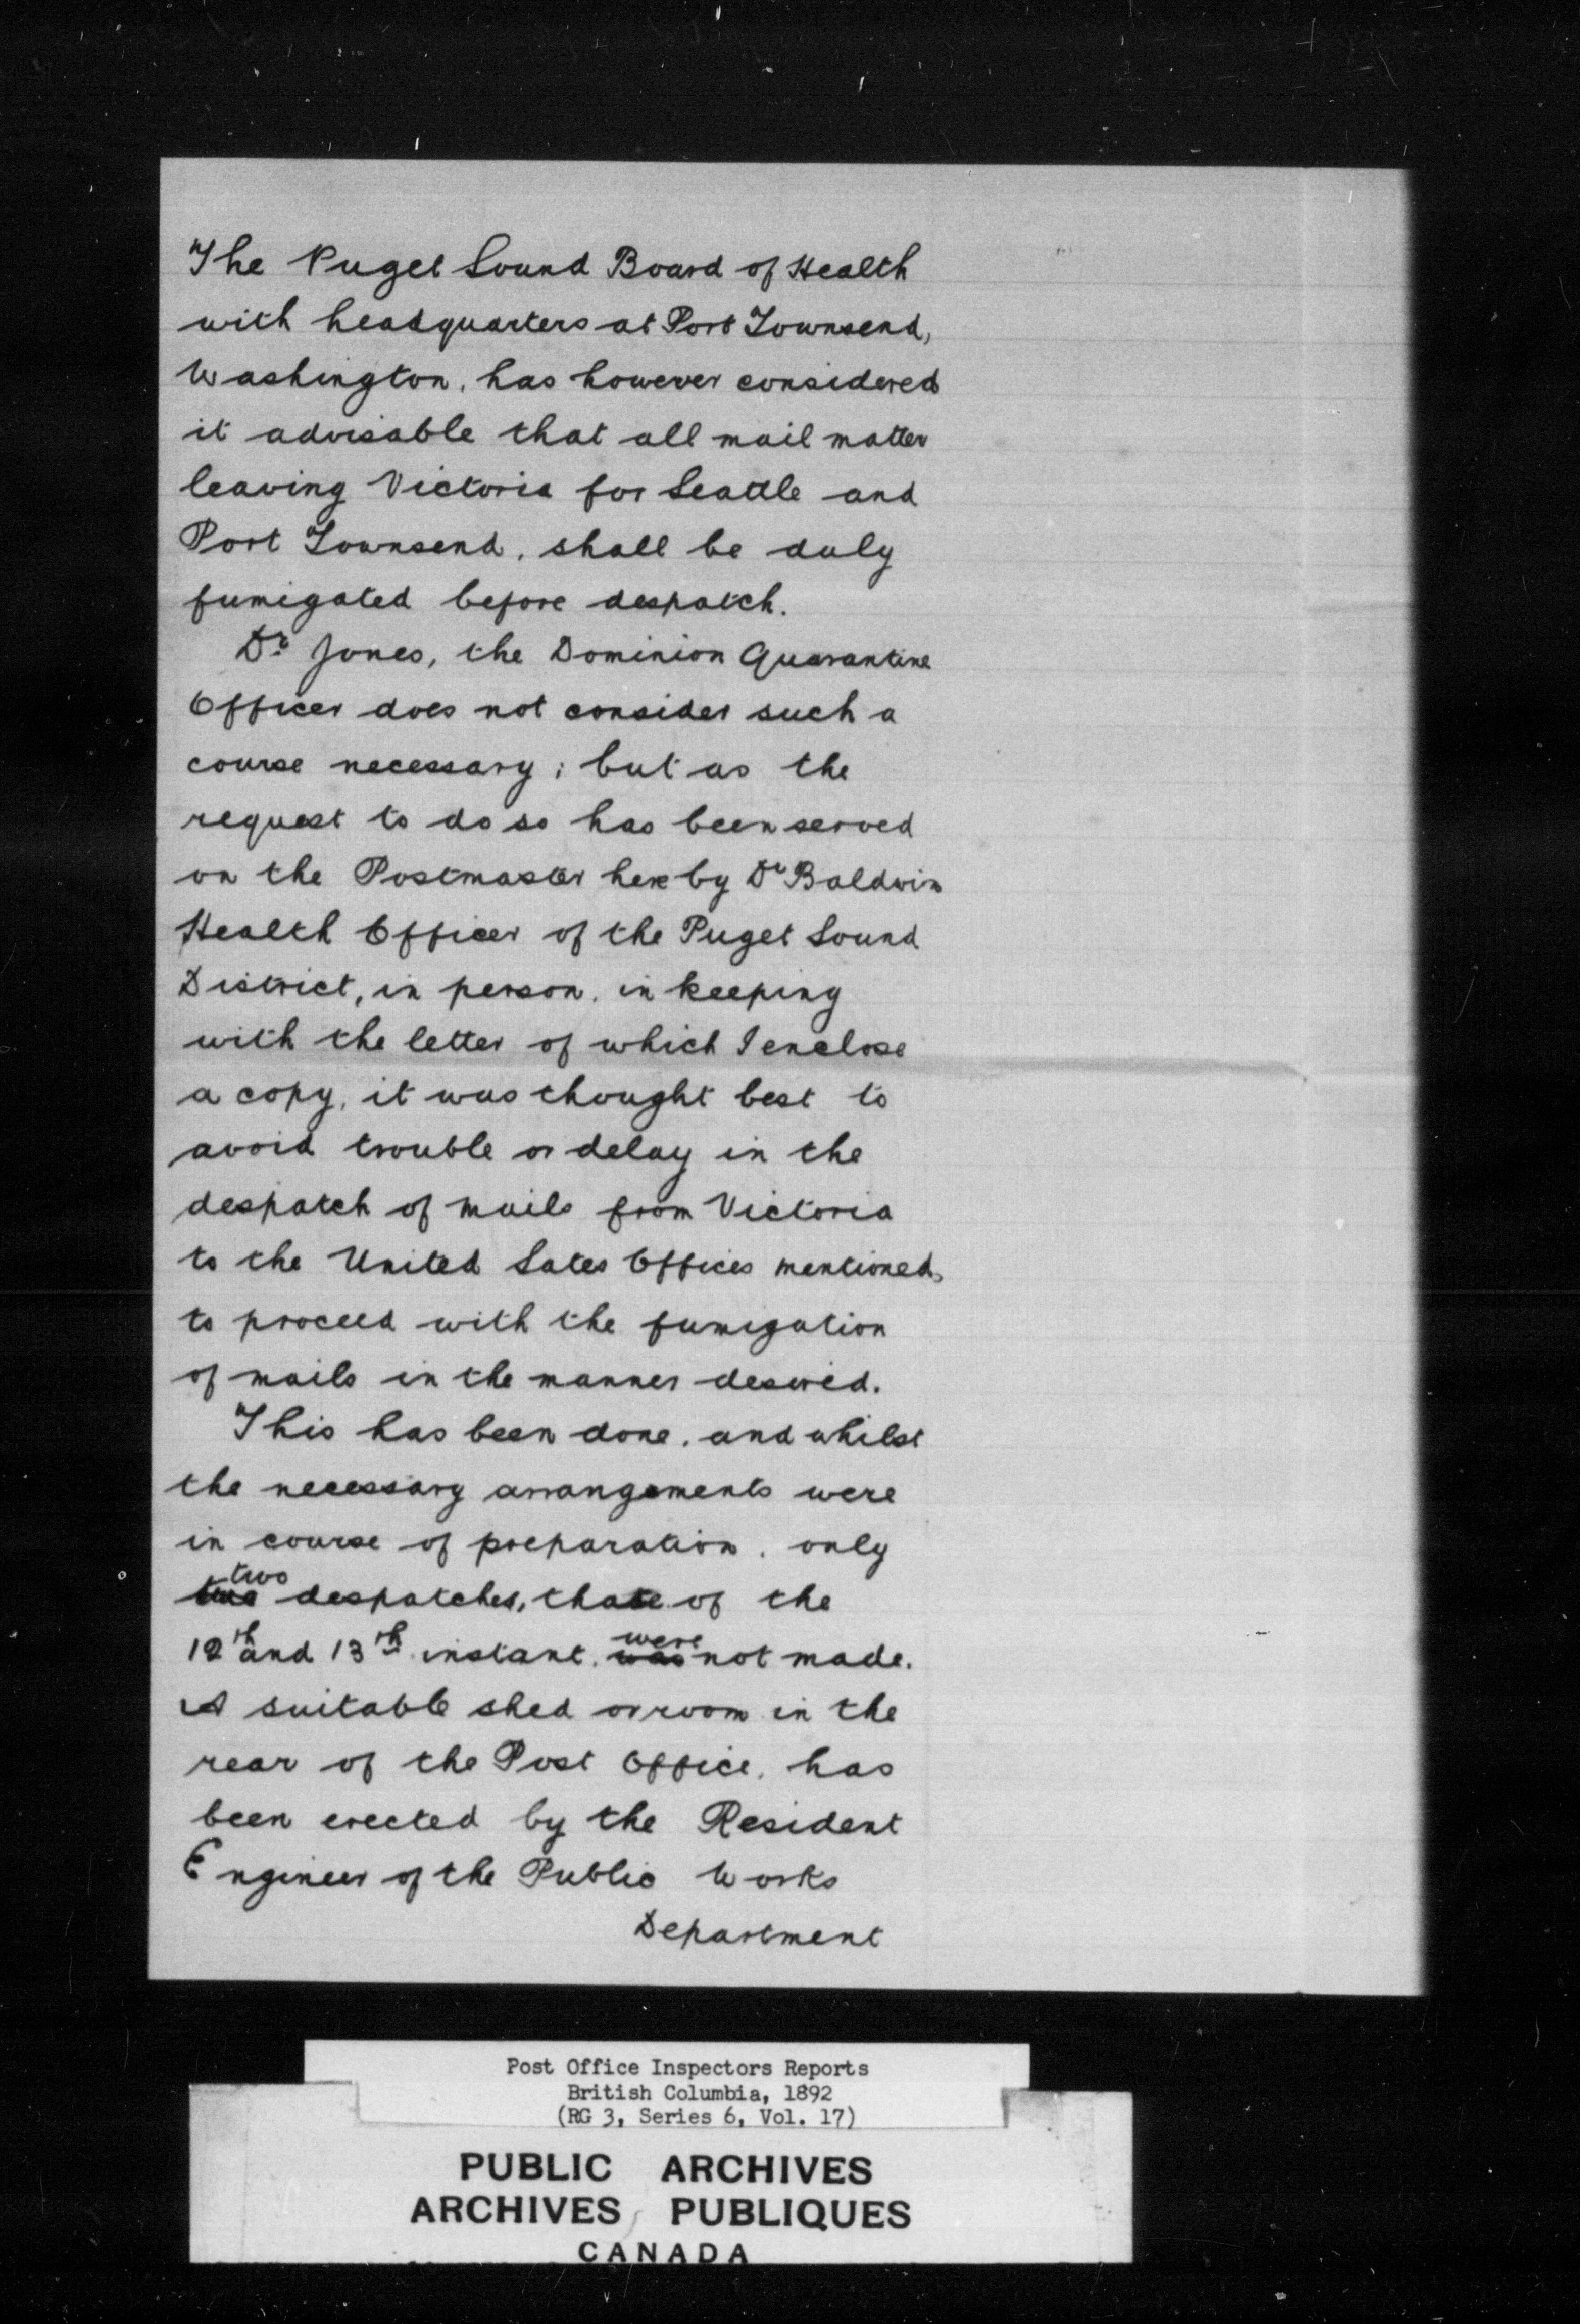 The Puget Sound Board of Health
with headquarters at Port Townsend,
Washington, has however considered
it advisable that all mail matter
leaving Victoria for Seattle and
Port Townsend, shall be duly
fumigated before despatch.
Dr. Jones, the Dominion Quarantine
Officer does not consider such a
course necessary; but as the
request to do so has been served
on the Postmaster here by Dr Baldwin
Health Officer of the Puget Sound
District, in person, in keeping
with the letter of which I enclose
a copy, it was thought best to
avoid trouble or delay in the
despatch of mails from Victoria
to the United Sates Offices mentioned,
to proceed with the fumigation
of mails in the manner desired.
This has been done, and whilst
the necessary arrangements were
in course of preparation, only
two despatches, those of the
12th and 13th instant, were not made.
A suitable shed or room in the
rear of the Post Office, has
been erected by the Resident
Engineer of the Public Works
Department
Post Office Inspectors Reports
British Columbia, 1892
(RG 3, Series 6, Vol. 17)
PUBLIC ARCHIVES
ARCHIVES PUBLIQUES
CANADA